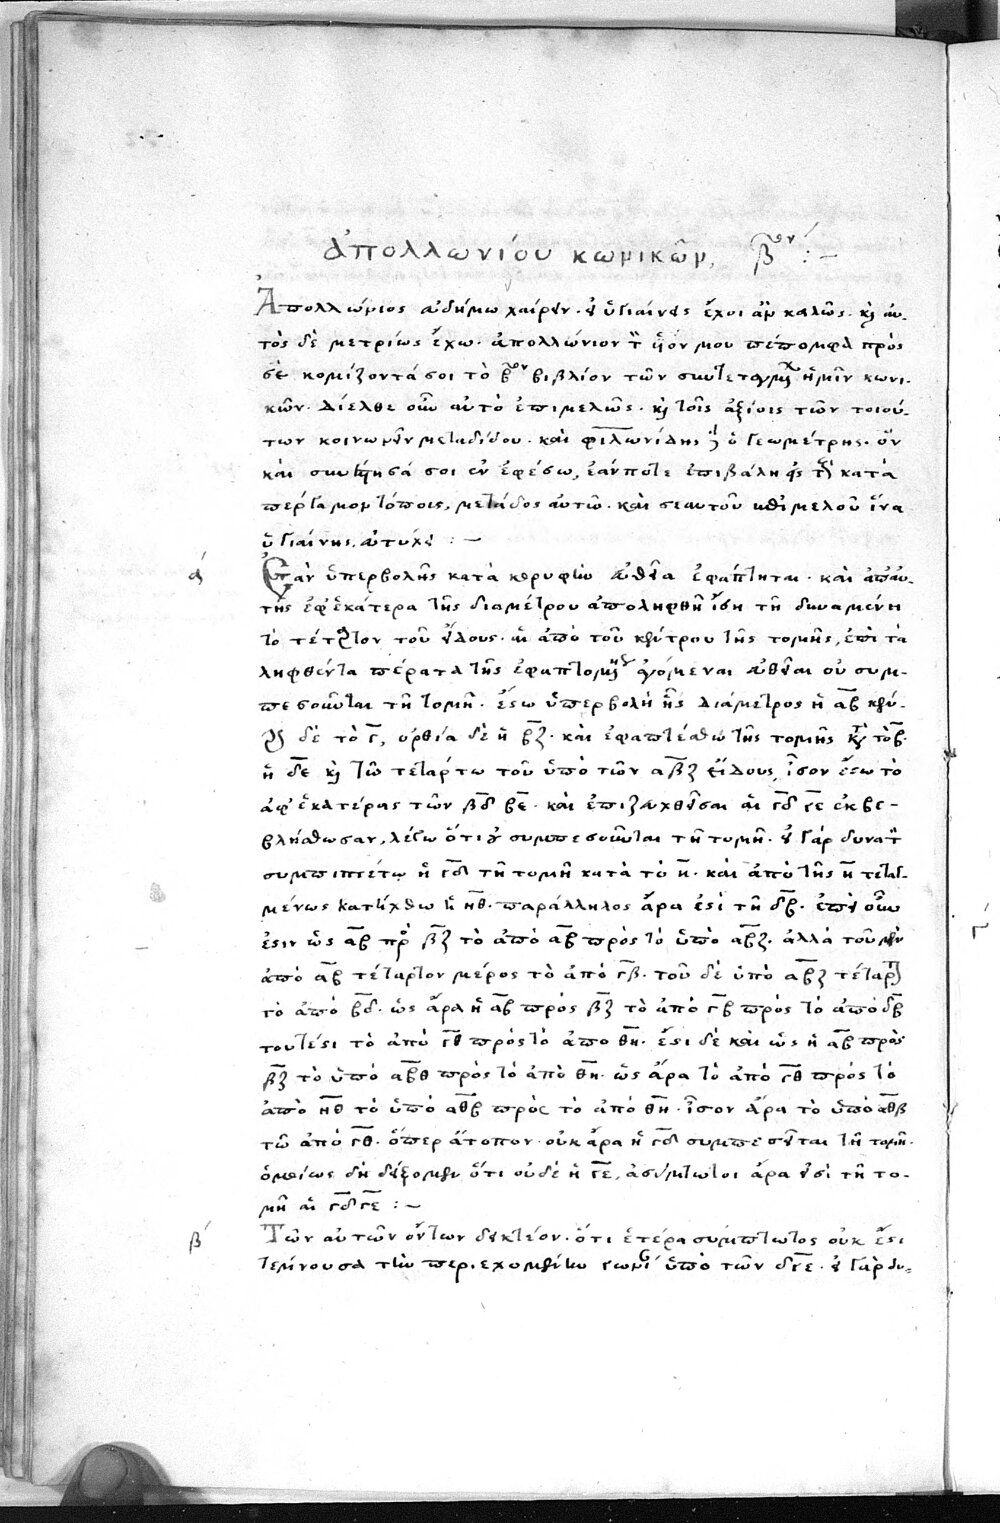 ἀπολλωνίου κωνικῶν βον :–
Ἀπολλώνιος εὐδήμω χαίρειν· εἰ ὑγιαίνεις ἔχοι ἂν καλῶς· κὶ αὐ-
τὸς δὲ μετρίως ἔχω· ἀπολλώνιον τὸν υἱόν μου πέπομφα πρὸς
σὲ κομίζοντά σοι τὸ βον βιβλίον τῶν συντεταγμένων ἡμῖν κωνι-
κῶν· δίελθε οὖν αὐτὸ ἐπιμελῶς· κὶ τοῖς ἀξίοις τῶν τοιού-
των κοινωνεῖν μεταδίδου· καὶ φιλωνίδης δὲ ὁ γεωμέτρης· ὃν
καὶ συνέστησά σοι ἐν ἐφέσω, ἐάν ποτε ἐπιβάλη εἰς τοὺς κατὰ
πέργαμον τόπους, μετάδος αὐτῶ· καὶ σεαυτοῦ ἐπιμελοῦ ἵνα
ὑγιαίνης. εὐτύχει :–
ά Ἐὰν ὑπερβολῆς κατὰ κορυφὴν εὐθεῖα ἐφάπτηται· καὶ ἀπ' αὐ-
τῆς ἐφ' ἑκάτερα τῆς διαμέτρου ἀποληφθῆ ἴση τῆ δυναμένη
τὸ τέταρτον τοῦ εἴδους· αἱ ἀπὸ τοῦ κέντρου τῆς τομῆς, ἐπὶ τὰ
ληφθέντα πέρατα τῆς ἐφαπτομένης ἀγόμεναι εὐθεῖαι οὐ συμ-
πεσοῦνται τῆ τομῆ· ἔστω ὑπερβολὴ ἧς διάμετρος ἡ αβ κέν-
τρον δὲ τὸ γ, ὀρθία δὲ ἡ βζ· καὶ ἐφαπτέσθω τῆς τομῆς κατὰ τὸ β·
ἡ δε κὶ τῶ τετάρτω τοῦ ὑπὸ τῶν αβζ εἴδους, ἴσον ἔστω τὸ
ἀφ' ἑκατέρας τῶν βδ βε· καὶ ἐπιζευχθεῖσαι αἱ γδ γε ἐκβε-
βλήσθωσαν, λέγω ὅτι οὐ συμπεσοῦνται τῆ τομῆ· εἰ γὰρ δυνατὸν
συμπιπτέτω ἡ γδ τῆ τομῆ κατὰ τὸ η· καὶ ἀπὸ τῆς η τεταγ-
μένως κατήχθω ἡ ηθ· παράλληλος ἄρα ἐστὶ τῆ δβ· ἐπεὶ οὖν
ἐστιν ὡς αβ πρὸς βζ τὸ ἀπὸ αβ πρὸς τὸ ὑπὸ αβζ· ἀλλὰ τοῦ μὲν
ἀπὸ αβ τέταρτον μέρος τὸ ἀπὸ γβ· τοῦ δὲ ὑπὸ αβζ τέταρτον
τὸ ἀπὸ βδ· ὡς ἄρα ἡ αβ πρὸς βζ τὸ ἀπὸ γβ πρὸς τὸ ἀπὸ δβ
τουτέστι τὸ ἀπὸ γθ πρὸς τὸ ἀπὸ θη· ἔστι δὲ καὶ ὡς ἡ αβ πρὸς
βζ τὸ ὑπὸ αβθ πρὸς τὸ ἀπὸ θη· ὡς ἄρα τὸ ἀπὸ γθ πρὸς τὸ
ἀπὸ ηθ τὸ ὑπὸ αθβ πρὸς τὸ ἀπὸ θη· ἴσον ἄρα τὸ ὑπὸ αθβ
τῶ ἀπὸ γθ· ὅπερ ἄτοπον· οὐκ ἄρα ἡ γδ συμπεσεῖται τῆ τομῆ·
ὁμοίως δὴ δείξομεν, ὅτι οὐδὲ ἡ γε, ἀσύμπτωτοι ἄρα εἰσὶ τῆ το-
μῆ αἱ γδ γε :–
β Τῶν αὐτῶν ὄντων δεικτέον· ὅτι ἑτέρα σύμπτωτος οὐκ ἔστι
τέμνουσα τὴν περιεχομένην γωνίαν ὑπὸ τῶν δγε· εἰ γὰρ δυ-